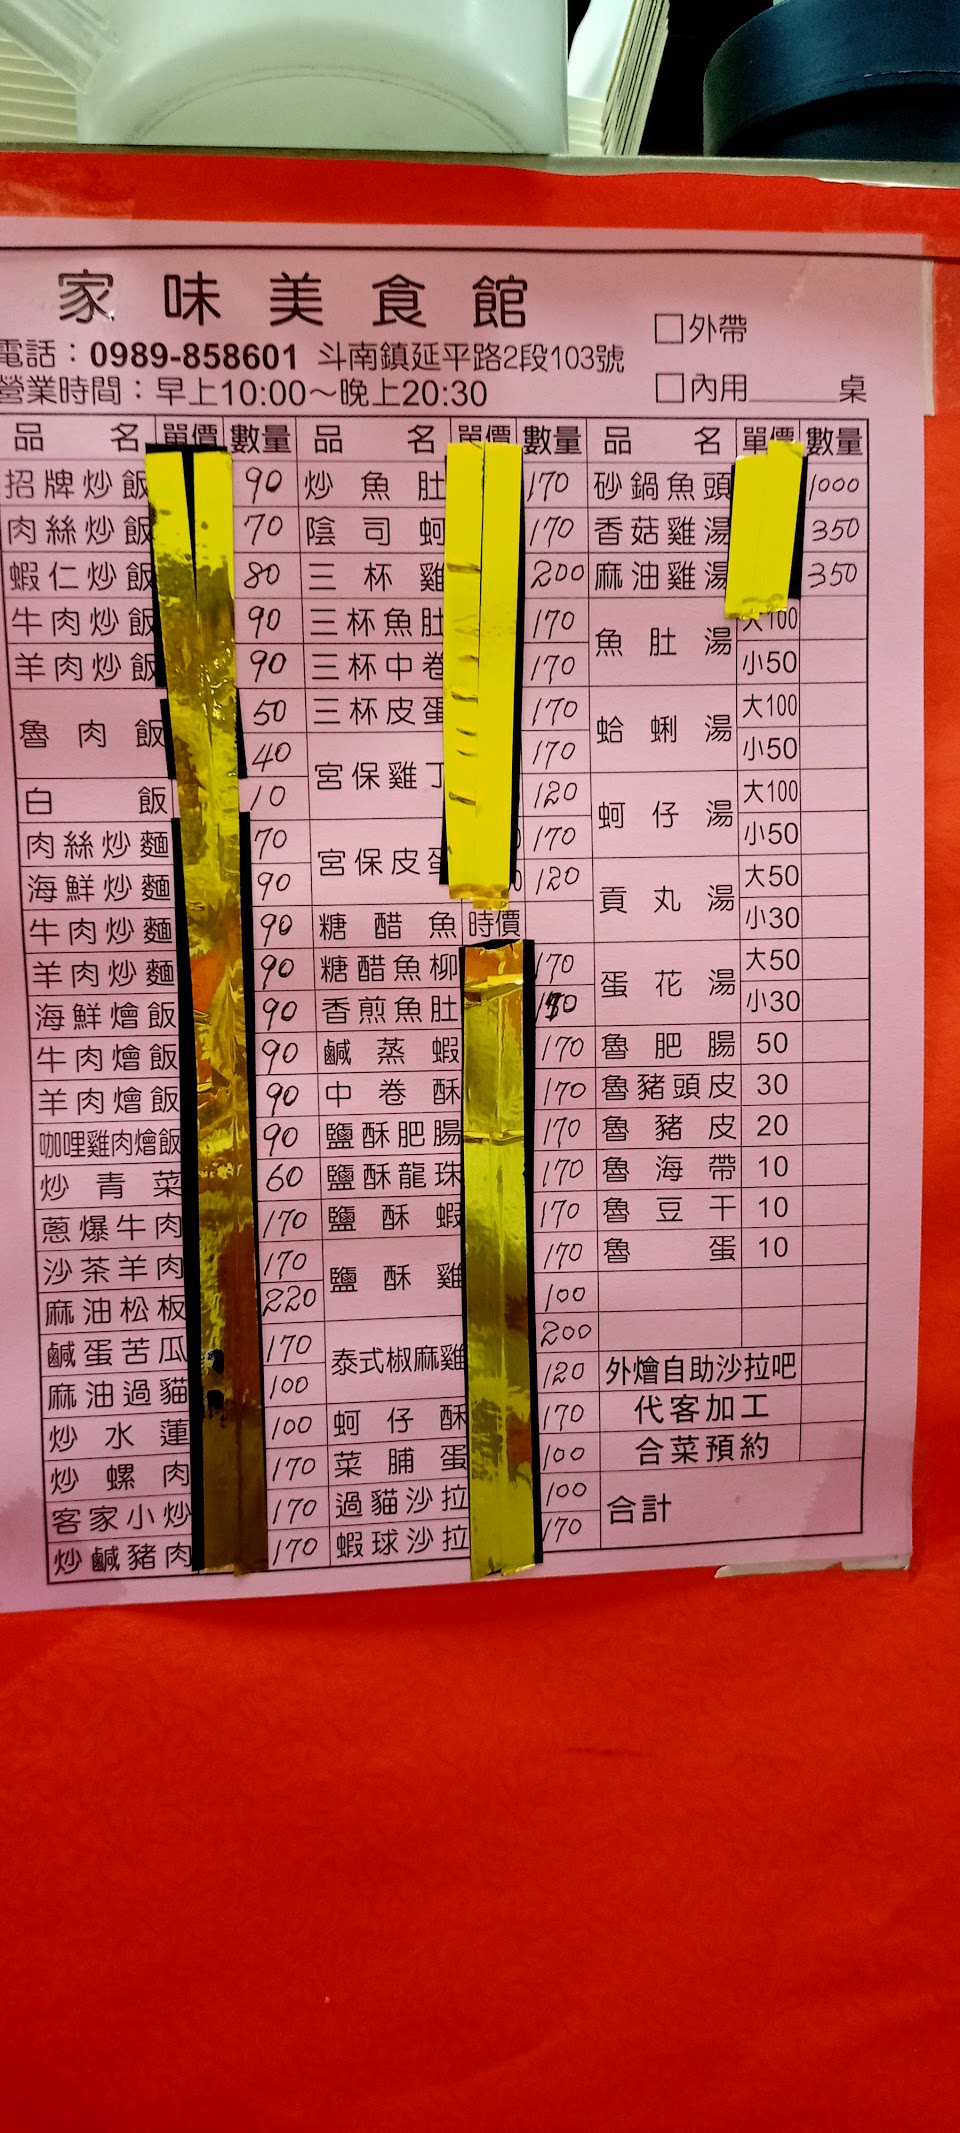 家味美食館
□外帶
電話：0989-858601 斗南鎮延平路2段103號
營業時間：早上10:00～晚上20:30
□內用____桌
品名 單價 數量
招牌炒飯 90
肉絲炒飯 70
蝦仁炒飯 80
牛肉炒飯 90
羊肉炒飯 90
魯肉飯 50
40
白飯 10
肉絲炒麵 70
海鮮炒麵 90
牛肉炒麵 90
羊肉炒麵 90
海鮮燴飯 90
牛肉燴飯 90
羊肉燴飯 90
咖哩雞肉燴飯 90
炒青菜 60
蔥爆牛肉 170
沙茶羊肉 170
麻油松板 220
鹹蛋苦瓜 170
麻油過貓 100
炒水蓮 100
炒螺肉 170
客家小炒 170
炒鹹豬肉 170
品名 單價 數量
炒魚肚 170
陰司蚵 170
三杯雞 200
三杯魚肚 170
三杯中卷 170
三杯皮蛋 170
宮保雞丁 170
120
宮保皮蛋 170
120
糖醋魚 時價
糖醋魚柳 170
香煎魚肚
鹹蒸蝦 170
中卷酥 170
鹽酥肥腸 170
鹽酥龍珠 170
鹽酥蝦 170
鹽酥雞 170
100
泰式椒麻雞 200
120
蚵仔酥 170
菜脯蛋 100
過貓沙拉 100
蝦球沙拉 170
品名 單價 數量
砂鍋魚頭 1000
香菇雞湯 350
麻油雞湯 350
魚肚湯 大100
小50
蛤蜊湯 大100
小50
蚵仔湯 大100
小50
貢丸湯 大50
小30
蛋花湯 大50
小30
魯肥腸 50
魯豬頭皮 30
魯豬皮 20
魯海帶 10
魯豆干 10
魯蛋 10
外燴自助沙拉吧
代客加工
合菜預約
合計